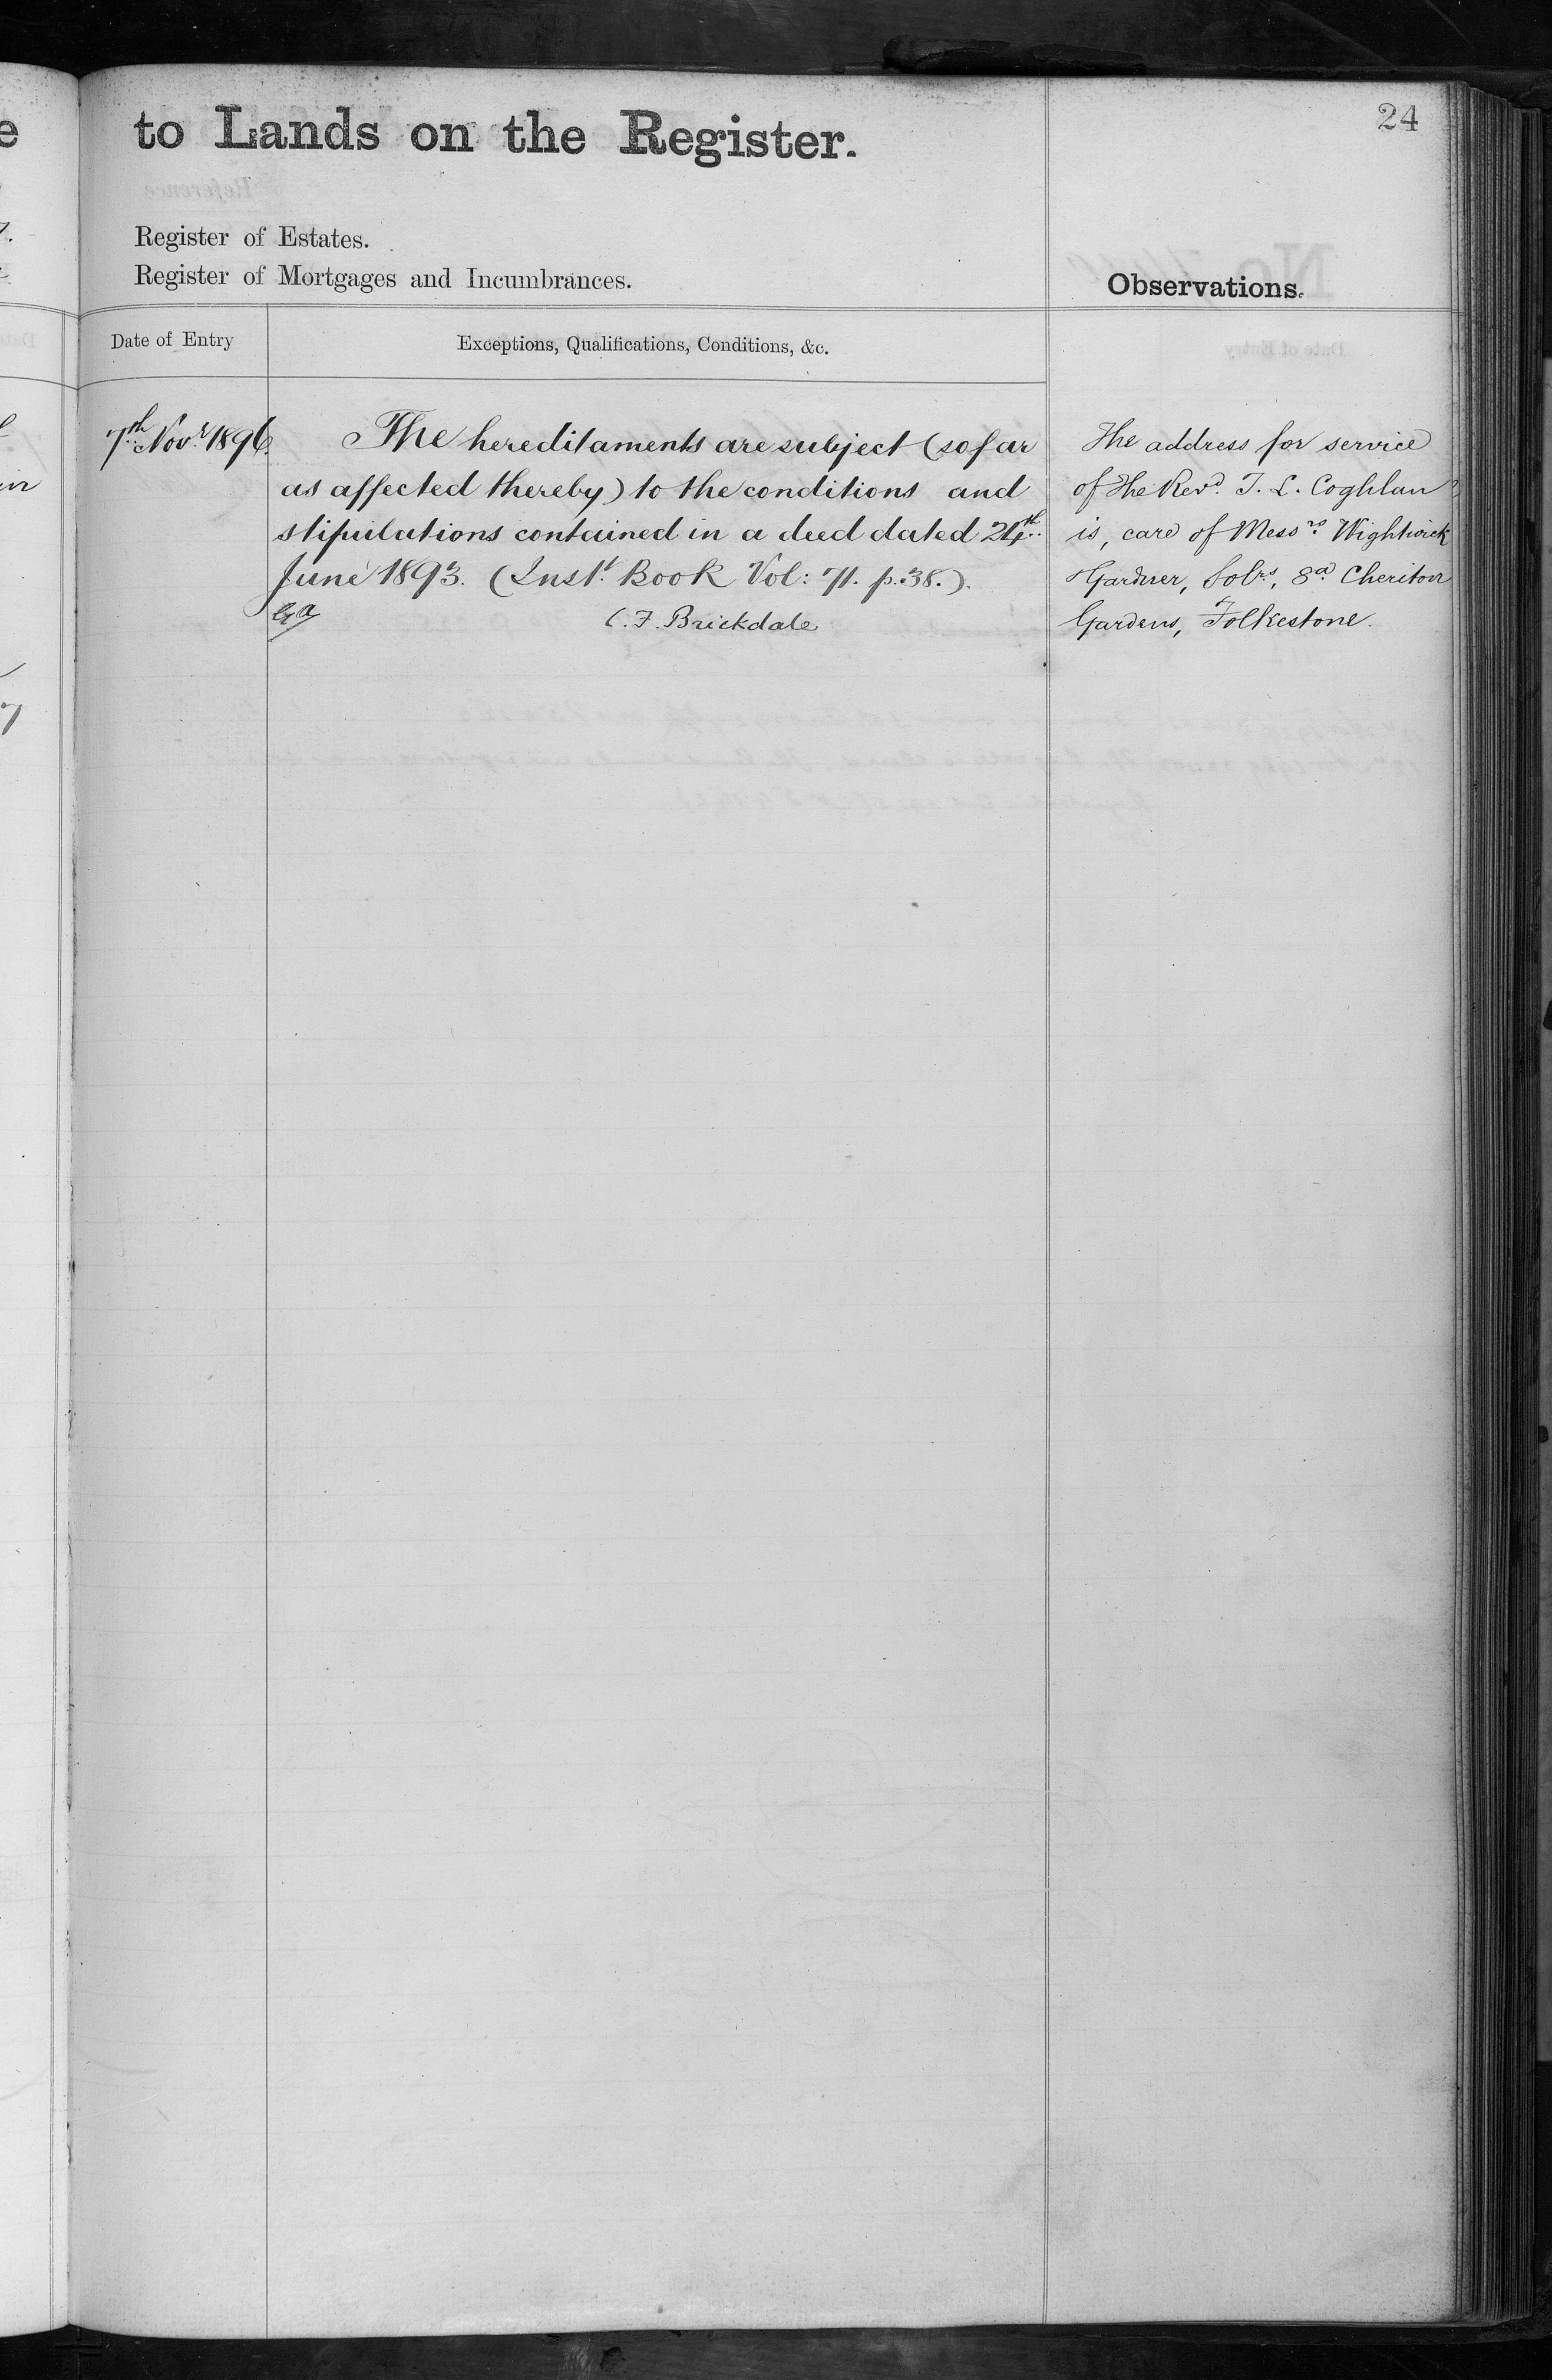 24
to Lands on the Register.
Register of Estates.
Register of Mortgages and Incumbrances.
Observations.
Date of Entry
Exceptions, Qualifications, Conditions, &c.
7th Novr 1896.
The hereditaments are subject (so far
as affected thereby) to the conditions and
stipulations contained in a deed dated 24th
June 1893. (Inst. Book Vol: 71. p. 38.).
C. F. Brickdale
The address for service
of The Revd. T. L. Coghlan
is, care of Messrs. Wightwick
& Gardner, Solrs, 8a Cheriton
Gardens, Folkestone.